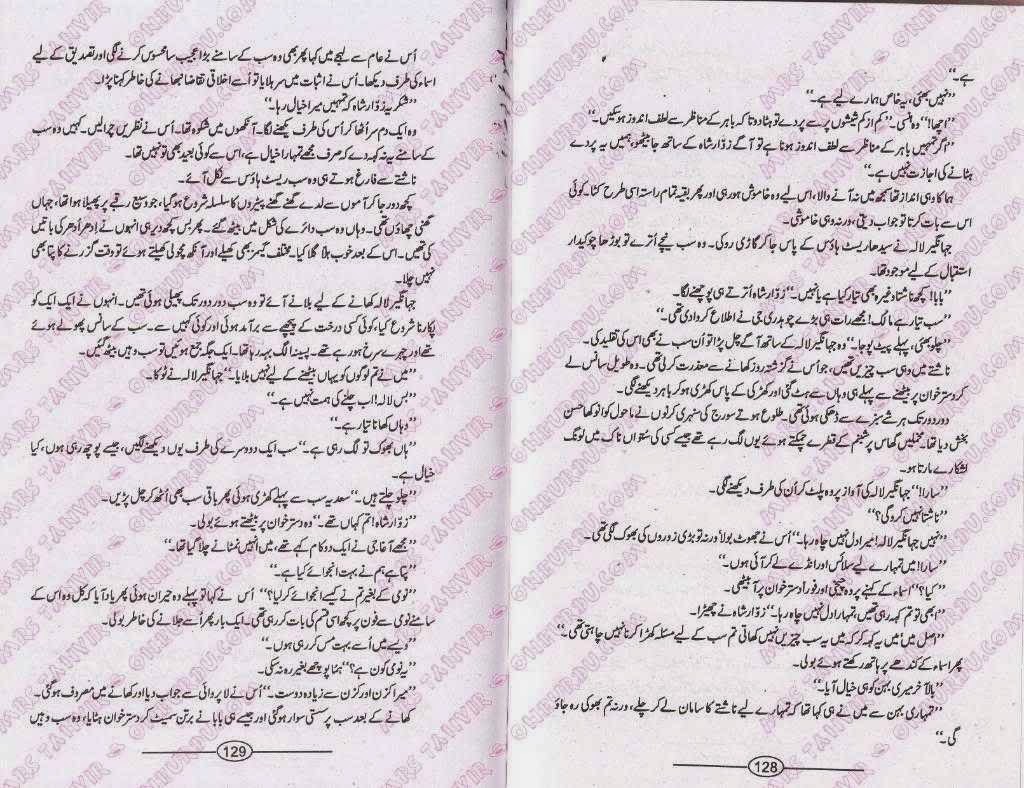 ہے۔‘‘
’’نہیں بھئی، یہ خاص ہمارے لیے ہے۔‘‘
’’اچھا!‘‘ وہ ہنسی۔ ’’کم از کم شیشوں پر سے پردے تو ہٹا دو تاکہ باہر کے مناظر سے لطف اندوز ہوسکیں۔‘‘
’’اگر تمہیں باہر کے مناظر سے لطف اندوز ہونا ہے تو آگے زوّار شاہ کے ساتھ جا بیٹھو، ہمیں یہ پردے
ہٹانے کی اجازت نہیں ہے۔‘‘
ہما کا وہی انداز تھا سمجھ میں نہ آنے والا، اس لیے وہ خاموش ہو رہی اور پھر بقیہ تمام راستہ اسی طرح کٹا۔ کوئی
اس سے بات کرتا تو جواب دیتی، ورنہ وہی خاموشی۔
جہانگیر لالہ نے سیدھا ریسٹ ہاؤس کے پاس جا کر گاڑی روکی۔ وہ سب نیچے اُترے تو بوڑھا چوکیدار
استقبال کے لیے موجود تھا۔
’’بابا! کچھ ناشتا وغیرہ بھی تیار کیا ہے یا نہیں۔‘‘ زوّار شاہ اُترتے ہی پوچھنے لگا۔
’’سب تیار ہے مالک! مجھے رات ہی بڑے چوہدری جی نے اطلاع کروا دی تھی۔‘‘
’’چلو بھئی، پہلے پیٹ پوجا۔‘‘ وہ جہانگیر لالہ کے ساتھ آگے چل پڑا تو اُن سب نے بھی اس کی تقلید کی۔
ناشتے میں وہی سب چیزیں تھیں، جو اس نے گزشتہ روز کھانے سے معذرت کر لی تھی۔ وہ طویل سانس لے
کر دسترخوان پر بیٹھنے سے پہلے ہی وہاں سے ہٹ گئی اور کھڑکی کے پاس کھڑی ہو کر باہر دیکھنے لگی۔
دور دور تک ہر شے سبزے سے ڈھکی ہوئی تھی۔ طلوع ہوتے سورج کی سنہری کرنوں نے ماحول کو انوکھا حسن
بخش دیا تھا۔ مخملیں گھاس پر شبنم کے قطرے چمکتے ہوئے یوں لگ رہے تھے جیسے کسی کی ستواں ناک میں لونگ
لشکارے مارتا ہو۔
’’سارا!‘‘ جہانگیر لالہ کی آواز پر وہ پلٹ کر اُن کی طرف دیکھنے لگی۔
’’ناشتا نہیں کرو گی؟‘‘
’’نہیں جہانگیر لالہ! میرا دل نہیں چاہ رہا۔‘‘ اُس نے جھوٹ بولا ورنہ تو بڑی زوروں کی بھوک لگی تھی۔
’’سارا! میں تمہارے لیے سلائس اور انڈے لے کر آئی ہوں۔‘‘
’’کیا؟‘‘ اسماء کے کہنے پر وہ چیخی اور فوراً دسترخوان پر آ بیٹھی۔
’’ابھی تو تم کہہ رہی تھیں، تمہارا دل نہیں چاہ رہا۔‘‘ زوّار شاہ نے چھیڑا۔
’’اصل میں، میں یہ کہہ کر کہ میں یہ سب چیزیں نہیں کھاتی تم سب کے لیے مسئلہ کھڑا کرنا نہیں چاہتی تھی۔‘‘
پھر اسماء کے کندھے پر ہاتھ رکھتے ہوئے بولی۔
’’بالآخر میری بہن کو ہی خیال آیا۔‘‘
’’تمہاری بہن سے میں نے ہی کہا تھا کہ تمہارے لیے ناشتے کا سامان لے کر چلے، ورنہ تم بھوکی رہ جاؤ
گی۔‘‘
128
اُس نے عام سے لہجے میں کہا پھر بھی وہ سب کے سامنے بڑا عجیب سا محسوس کرنے لگی اور تصدیق کے لیے
اسماء کی طرف دیکھا۔ اُس نے اثبات میں سر ہلایا تو اُسے اخلاقی تقاضا نبھانے کی خاطر کہنا پڑا۔
’’شکریہ زوّار شاہ کہ تمہیں میرا خیال رہا۔‘‘
وہ ایک دم سر اُٹھا کر اُس کی طرف دیکھنے لگا۔ آنکھوں میں شکوہ تھا۔ اُس نے نظریں چرا لیں۔ کہیں وہ سب
کے سامنے یہ نہ کہہ دے کہ صرف مجھے تمہارا خیال ہے، اس سے کوئی بعید بھی تو نہیں تھا۔
ناشتے سے فارغ ہوتے ہی وہ سب ریسٹ ہاؤس سے نکل آئے۔
کچھ دور جا کر آموں سے لدے گھنے گھنے پیڑوں کا سلسلہ شروع ہو گیا، جو وسیع رقبے پر پھیلا ہوا تھا، جہاں
گھنی چھاؤں تھی۔ وہاں وہ سب دائرے کی شکل میں بیٹھ گئے۔ پھر بس کچھ دیر ہی انہوں نے اِدھر اُدھر کی باتیں
کی تھیں۔ اس کے بعد خوب ہلا گلا کیا۔ مختلف گیمز بھی کھیلے اور آنکھ مچولی کھیلتے ہوئے تو وقت گزرنے کا پتا بھی
نہیں چلا۔
جہانگیر لالہ کھانے کے لیے بلانے آئے تو وہ سب دور دور تک پھیلی ہوئی تھیں۔ انہوں نے ایک ایک کو
پکارنا شروع کیا، کوئی کسی درخت کے پیچھے سے برآمد ہوئی اور کوئی کہیں سے۔ سب کے سانس پھولے ہوئے
تھے اور چہرے سرخ ہو رہے تھے۔ پسینا الگ بہہ رہا تھا۔ ایک جگہ جمع ہوئیں تو سب وہیں بیٹھ گئیں۔
’’میں نے تم لوگوں کو یہاں بیٹھنے کے لیے نہیں بلایا۔‘‘ جہانگیر لالہ نے ٹوکا۔
’’بس لالہ! اب چلنے کی ہمت نہیں ہے۔‘‘
’’وہاں کھانا تیار ہے۔‘‘
’’ہاں بھوک تو لگ رہی ہے۔‘‘ سب ایک دوسرے کی طرف یوں دیکھنے لگیں، جیسے پوچھ رہی ہوں، کیا
خیال ہے۔
’’چلو چلتے ہیں۔‘‘ سعدیہ سب سے پہلے کھڑی ہوئی پھر باقی سب بھی اُٹھ کر چل پڑیں۔
’’زوّار شاہ! تم کہاں تھے۔‘‘ وہ دسترخوان پر بیٹھتے ہوئے بولی۔
’’مجھے آغا جی نے ایک دو کام کہے تھے، میں انہیں نمٹانے چلا گیا تھا۔‘‘
’’پتا ہے ہم نے بہت انجوائے کیا ہے۔‘‘
’’نومی کے بغیر تم نے کیسے انجوائے کر لیا؟‘‘ اُس نے کہا تو پہلے وہ حیران ہوئی پھر یاد آیا کہ کل وہ اس کے
سامنے نومی سے فون پر کچھ اسی قسم کی بات کر رہی تھی۔ ایک بار پھر اُسے جلانے کی خاطر بولی۔
’’ویسے میں اُسے بہت مس کر رہی ہوں۔‘‘
’’یہ نومی کون ہے؟‘‘ ہما پوچھے بغیر رہ نہ سکی۔
’’میرا کزن اور کزن سے زیادہ دوست۔‘‘ اُس نے لاپروائی سے جواب دیا اور کھانے میں مصروف ہو گئی۔
کھانے کے بعد سب پر سستی سوار ہو گئی اور جیسے ہی بابا نے برتن سمیٹ کر دسترخوان ہٹایا، وہ سب وہیں
129